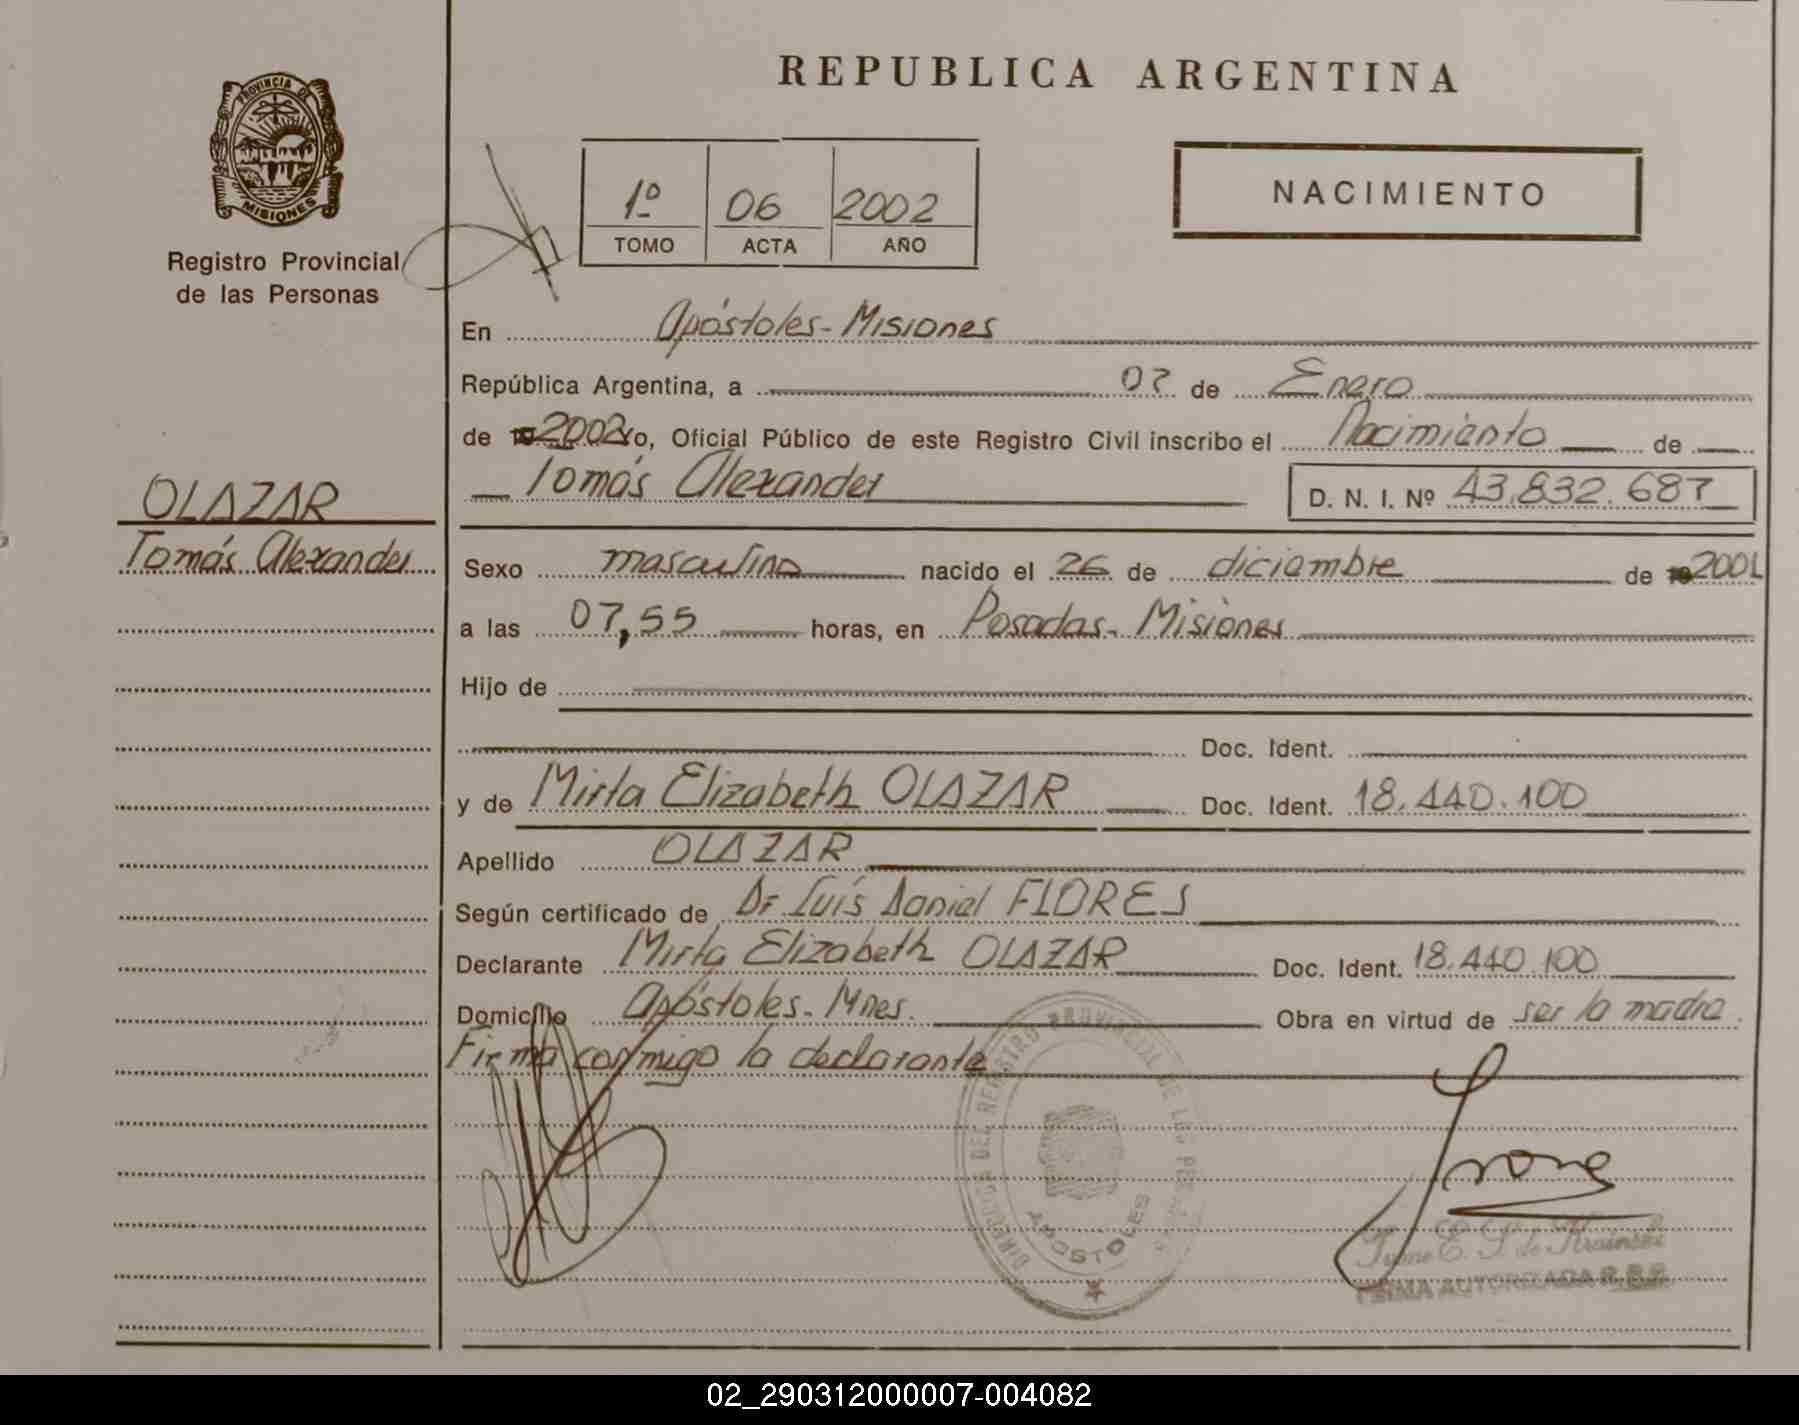 PROVINCIA DE
MISIONES
Registro Provincial
de las Personas
OLAZAR
Tomás Alexander
REPUBLICA ARGENTINA
1º 06 2002
TOMO ACTA AÑO
NACIMIENTO
En Apóstoles - Misiones
República Argentina, a 07 de Enero
de 2002 yo, Oficial Público de este Registro Civil inscribo el Nacimiento de
Tomás Alexander D. N. I. Nº 43.832.687
Sexo masculino nacido el 26 de diciembre de 2001
a las 07,55 horas, en Posadas - Misiones
Hijo de
Doc. Ident.
y de Mirta Elizabeth OLAZAR Doc. Ident. 18.440.100
Apellido OLAZAR
Según certificado de Dr Luís Daniel FLORES
Declarante Mirta Elizabeth OLAZAR Doc. Ident. 18.440.100
Domicilio Apóstoles - Mnes. Obra en virtud de ser la madre.
Firma conmigo la declarante
DEL REGISTRO PROVINCIAL DE LAS
APOSTOLES
Ivone
Ivone E. S. de
FIRMA AUTORIZADA R.P.P.
02_290312000007-004082